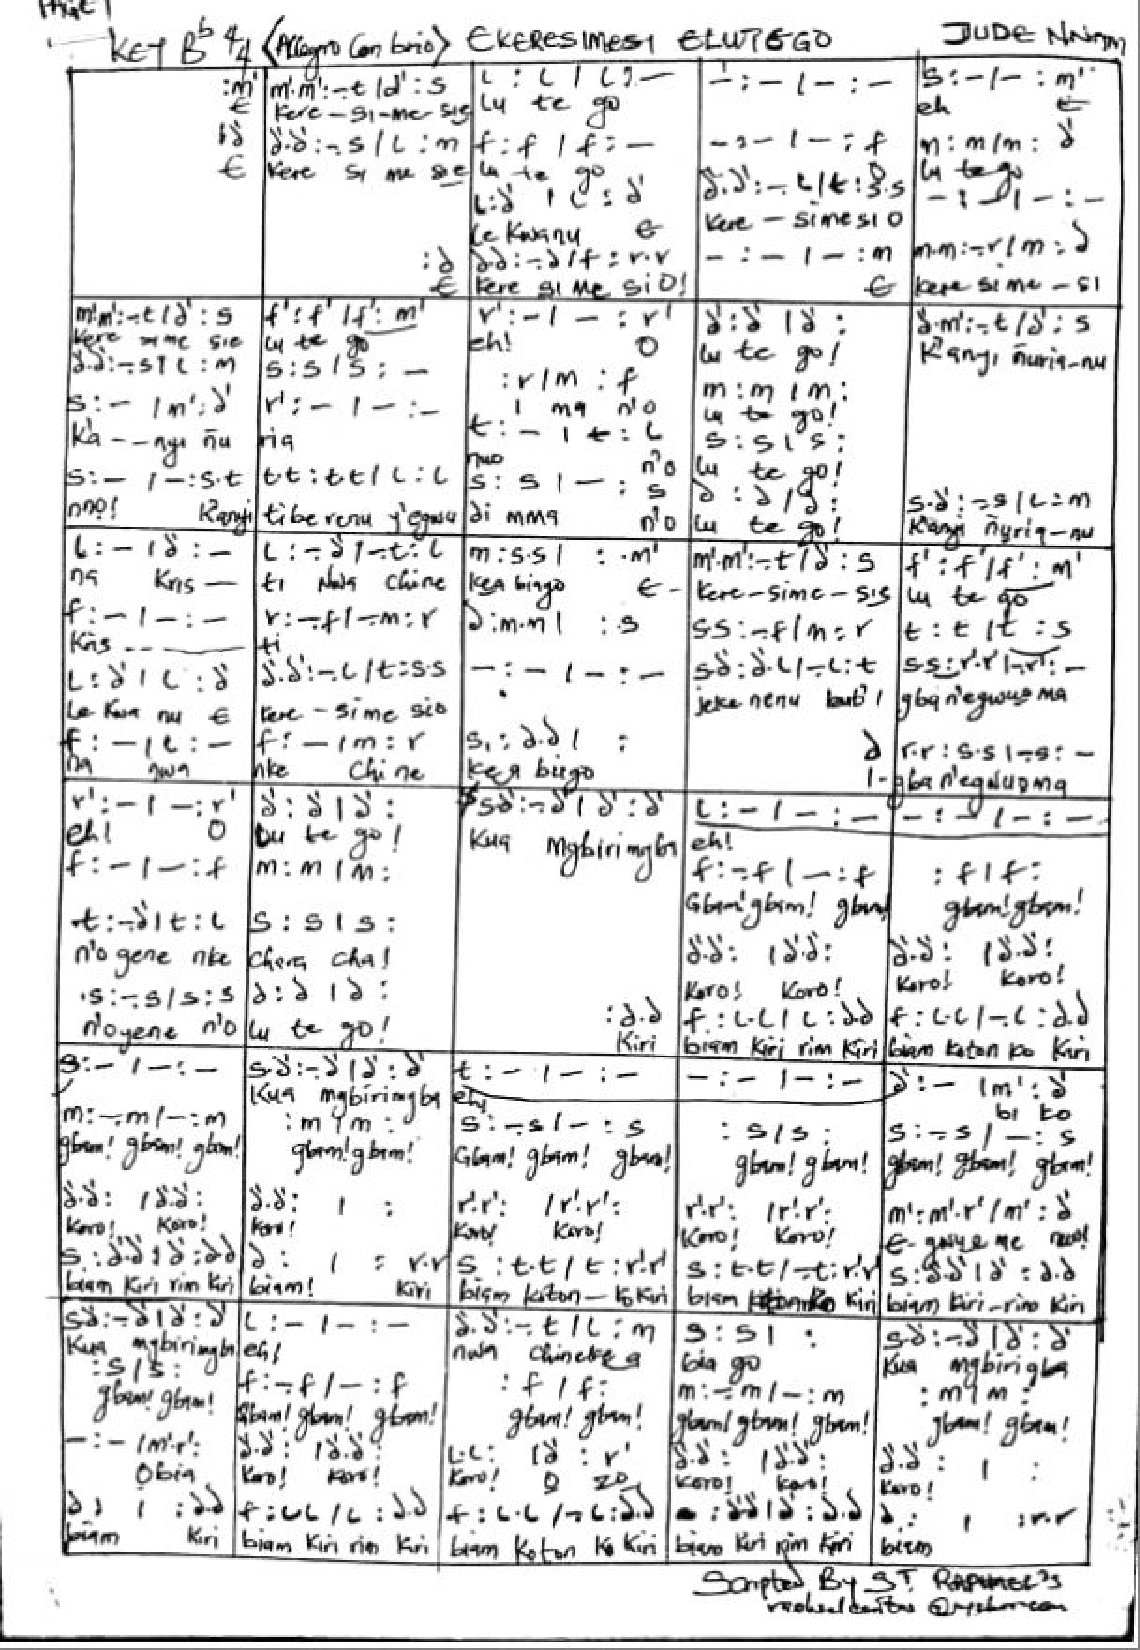 PAGE 1
KEY Bb 4/4 (Allegro Con brio) EKERESIMESI ELUTEGO JUDE NNAM
:m' | m'.m':-.t / d' : s | L : L / L : — | - : — / — : — | s : — / — : m'
E | Kere – si – me – sis | lu te go | eh E
:d' | d'.d':-.s / L : m | f : f / f : — | - : - / — : f | m : m / m : d'
E | Kere si me sie | lu te go | lu te go
L : d' / L : d' | d'.d':-.L / t : s.s | — : — / — : —
le Kwanu E | Kere – sime si O
:d | d.d:-.d / f : r.r | - : — / — : m | m.m:-.r / m : d
E | Kere si me si O! | E | Kere si me – si
m'.m':-.t / d' : s | f' : f' / f' : m' | r' : — / — : r' | d' : d' / d' : | d'.m':-.t / d' : s
Kere si me sie | lu te go | eh! O | lu te go! | K'anyi ñuria-nu
d'.d':-.s / L : m | s : s / s : — | : r / m : f | m : m / m :
I ma n'o | lu te go!
s : — / m' : d' | r' : — / — : — | t : — / t : L | s : s / s :
K'a - - nyi ñu | ria | nuo n'o | lu te go!
s : — / — : s.t | t.t : t.t / L : L | s : s / — : s | d : d / d : | s.d':-.s / L : m
nno! Kanyi | tiberenu y'egwu | di mma n'o | lu te go! | Kanyi ñuria-nu
L : — / d' : — | L :-.d' /-.t : L | m : s.s / : .m' | m'.m':-.t / d' : s | f' : f' / f' : m'
na Kris — | ti Nwa Chine | kea biago E- | Kere-sime-sis | lu te go
f : — / — : — | r :-.f /-.m : r | d : m.m / : s | s.s:-.f / m : r | t : t / t : s
Kris | ti
L : d' / L : d' | d'.d':-.L / t : s.s | — : — / — : — | s.d' : d'.L /-.L : t | s.s : r'.r' /-.r' : —
le Kwa nu E | Kere – sime sio | jeke nenu | gba n'egwuoma
f : — / L : — | f : — / m : r | s, : d.d / : | d | r.r : s.s /-.s : —
na nwa | nke Chine | kea biago | I-gba n'egwuoma
r' : — / — : r' | d' : d' / d' : | s.d':-.d' / d' : d' | L : — / — : — | — : — / — : —
eh! O | Lu te go! | Kua Mgbirimgba | eh!
f : — / — : f | m : m / m : | f :-.f / — : f | : f / f :
Gbam! gbam! gbam! | gbam! gbam!
t :-.d' / t : L | s : s / s : | d'.d' : / d'.d' : | d'.d' : / d'.d' :
n'ogene nke | Chara cha! | Koro! Koro! | Koro! Koro!
.s:-.s / s : s | d : d / d : | : d.d | f : L.L / L : d.d | f : L.L /-.L : d.d
n'ogene n'o | lu te go! | Kiri | biam Kiri rim Kiri | biam koton ko Kiri
s : — / — : — | s.d':-.d' / d' : d' | t : — / — : — | — : — / — : — | d' : — / m' : d'
Kua mgbirimgba | eh! | bi ko
m :-.m / — : m | : m / m : | s :-.s / — : s | : s / s : | s :-.s / — : s
gbam! gbam! gbam! | gbam! gbam! | Gbam! gbam! gbam! | gbam! gbam! | gbam! gbam! gbam!
d'.d' : / d'.d' : | d'.d' : / : | r'.r' : / r'.r' : | r'.r' : / r'.r' : | m' : m'.r' / m' : d'
Koro! Koro! | Koro! | Koro! Koro! | Koro! Koro! | E- me nuo!
s : d'.d' / d' : d.d | d : / : r.r | s : t.t / t : r'.r' | s : t.t /-.t : r'.r' | s : d'.d' / d' : d.d
biam Kiri rim Kiri | biam! Kiri | biam koton – ko Kiri | biam Kiri | biam Kiri-rim Kiri
s.d':-.d' / d' : d' | L : — / — : — | d'.d':-.t / L : m | s : s / : | s.d':-.d' / d' : d'
Kua mgbirimgba | eh! | nwa Chinekea | bia go | Kua mgbirigba
: s / s : | f :-.f / — : f | : f / f : | m :-.m / — : m | : m / m :
gbam! gbam! | Gbam! gbam! gbam! | gbam! gbam! | gbam! gbam! gbam! | gbam! gbam!
— : — / m'.r' : | d'.d' : / d'.d' : | L.L : / d' : r' | d'.d' : / d'.d' : | d'.d' : / :
Obia | Koro! Koro! | Koro! O zo | Koro! Koro! | Koro!
d : / : d.d | f : L.L / L : d.d | f : L.L /-.L : d.d | : d'.d' / d' : d.d | d : / : r.r
biam Kiri | biam Kiri rim Kiri | biam Koton Ko Kiri | biam Kiri rim Kiri | biam
Scripted By ST. RAPHAEL'S